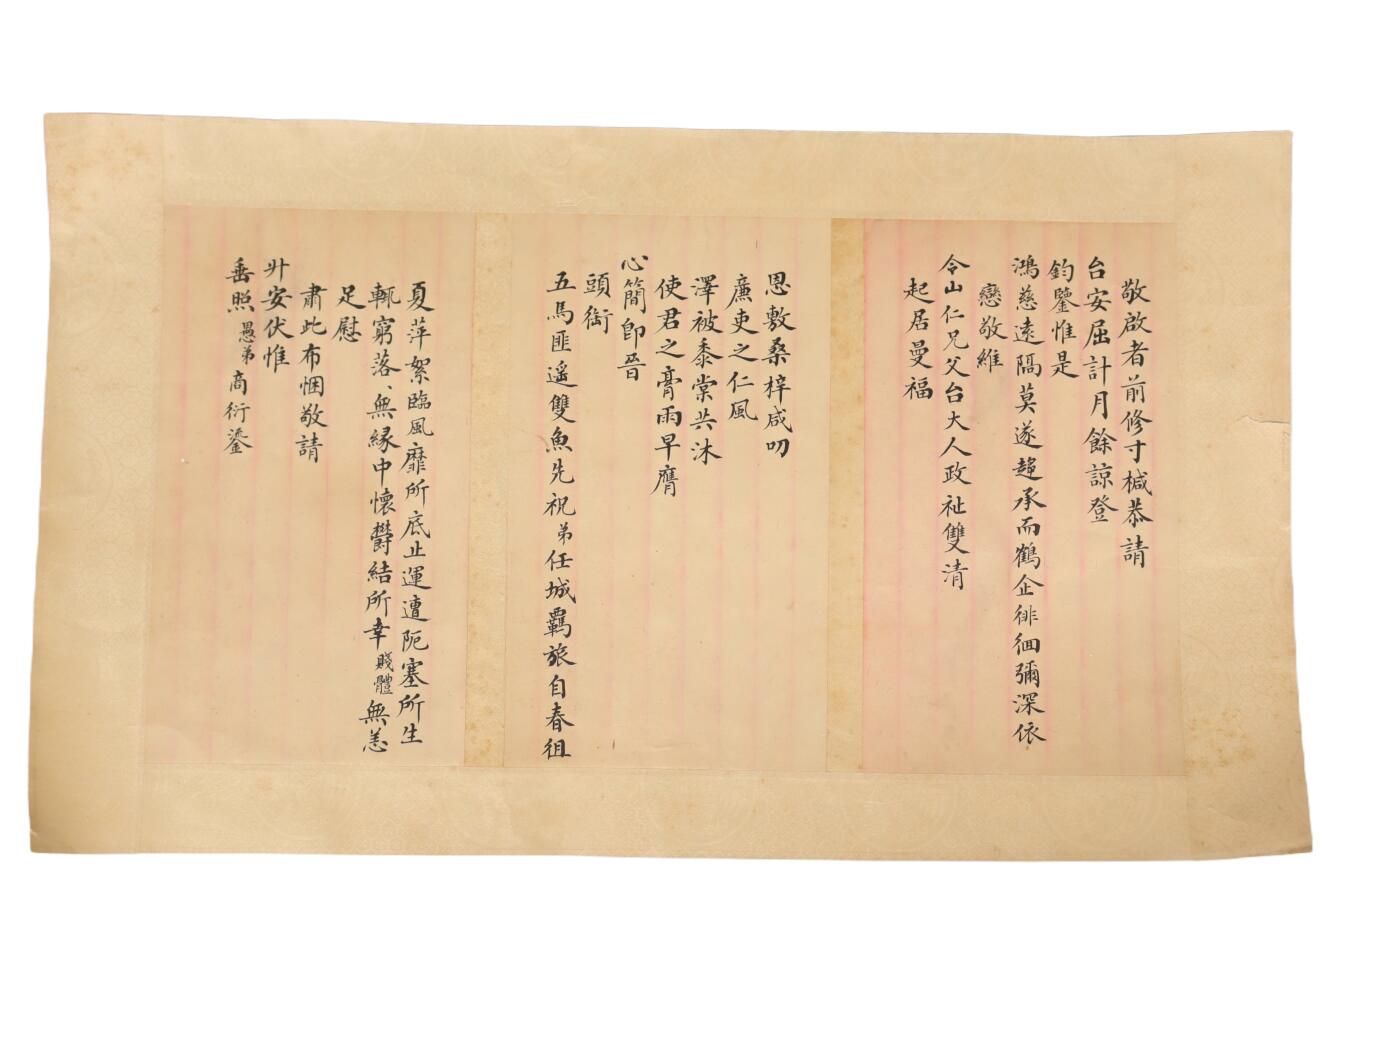 敬啟者前修寸椷恭請
台安屈計月餘諒登
鈞鑒惟是
鴻慈遠隔莫遂趨承而鶴企徘徊彌深依
戀敬維
令山仁兄父台大人政祉雙清
起居曼福
恩敷桑梓咸叨
廉吏之仁風
澤被黍棠共沐
使君之膏雨早膺
心簡卽晉
頭銜
五馬匪遙雙魚先祝弟任城羈旅自春徂
夏萍絮臨風靡所底止運遭阨塞所生
輒窮落、無緣中懷欝結所幸賤體無恙
足慰
肅此布悃敬請
升安伏惟
垂照愚弟商衍鎏